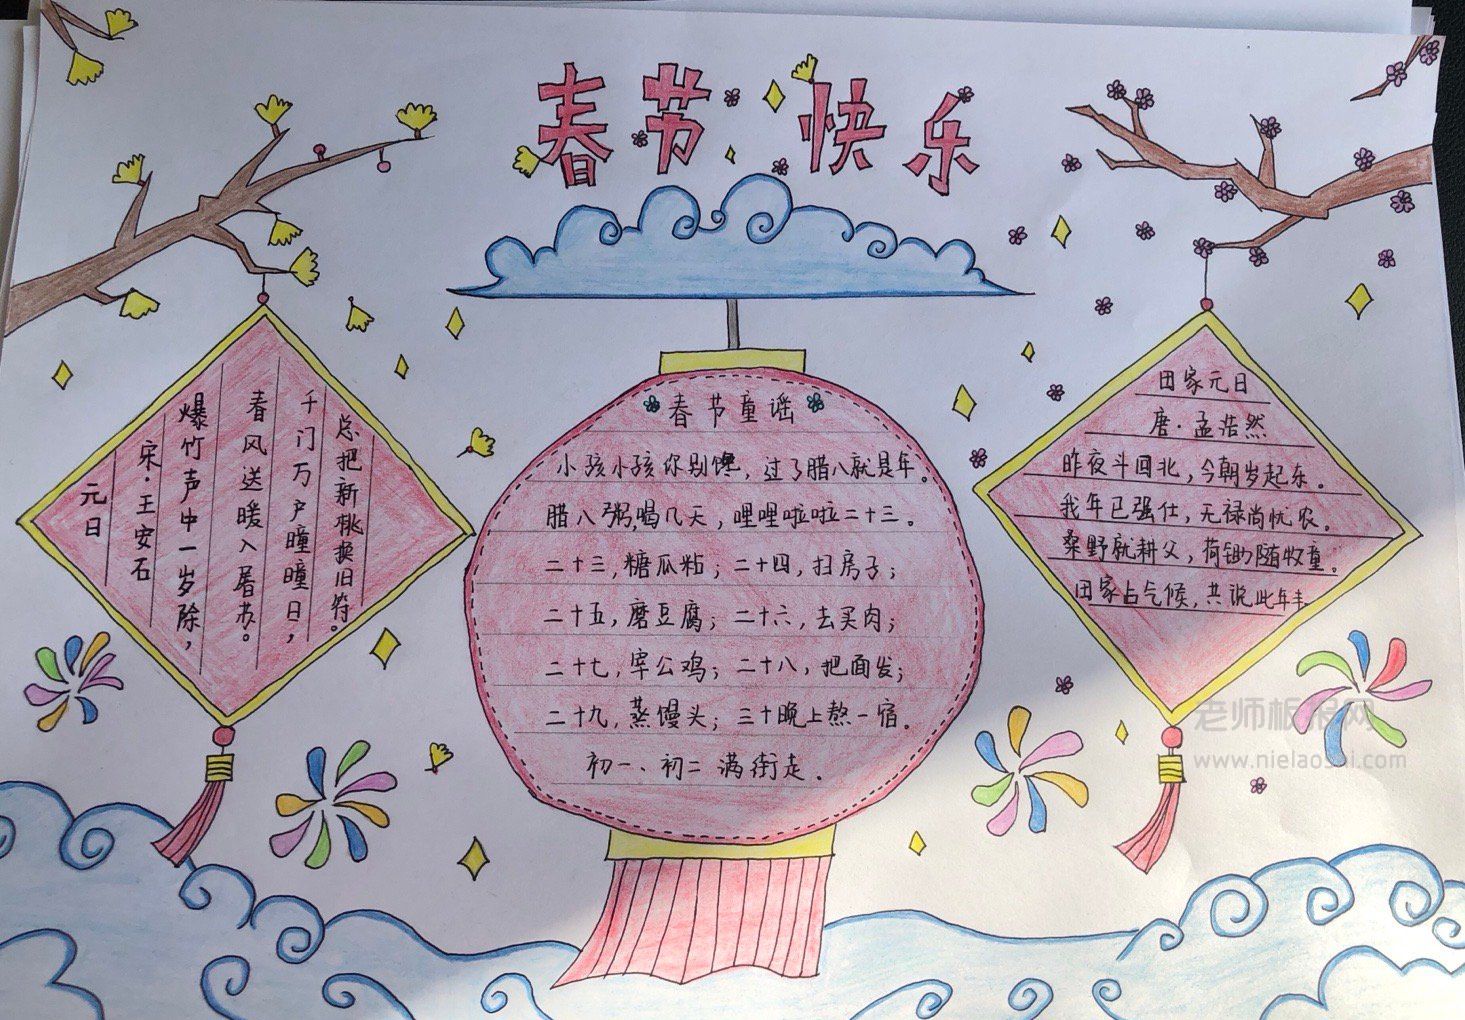 春节快乐
元日
宋·王安石
爆竹声中一岁除，
春风送暖入屠苏。
千门万户曈曈日，
总把新桃换旧符。
春节童谣
小孩小孩你别馋，过了腊八就是年。
腊八粥，喝几天，哩哩啦啦二十三。
二十三，糖瓜粘；二十四，扫房子；
二十五，磨豆腐；二十六，去买肉；
二十七，宰公鸡；二十八，把面发；
二十九，蒸馒头；三十晚上熬一宿.
初一、初二满街走.
田家元日
唐·孟浩然
昨夜斗回北，今朝岁起东。
我年已强仕，无禄尚忧农。
桑野就耕父，荷锄随牧童。
田家占气候，共说此年丰
老师板报网
www.nielaoshi.com